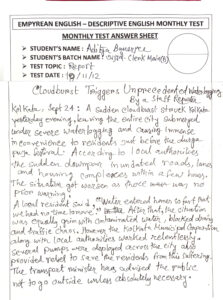 EMPYREAN ENGLISH – DESCRIPTIVE ENGLISH MONTHLY TEST
MONTHLY TEST ANSWER SHEET
➤ STUDENT'S NAME : Aditya Banerjee
➤ STUDENT'S BATCH NAME : Clerk Mains
➤ TEST TOPIC : Report
➤ TEST DATE : 11/12
Cloudburst Triggers Unprecedented Waterlogging
By a Staff Reporter
Kolkata, Sept 24: A sudden cloudburst struck Kolkata
yesterday evening, leaving the entire city submerged
under severe waterlogging and causing immense
inconvenience to residents during the
puja. According to local authorities
the sudden downpour inundated roads, lanes
and housing complexes within a few hours.
The situation got worse as there was no
prior warning.
A local resident said, "Water entered homes so fast that
we had no time to move." After that, the situation
was equally grim with contaminated water, blocked drains
and traffic chaos. However the Kolkata Municipal Corporation
along with local authorities worked relentlessly.
Several pumps were deployed across the city also
provided relief to save the residents from this suffering.
The transport minister has advised the public
not to go outside unless absolutely necessary.